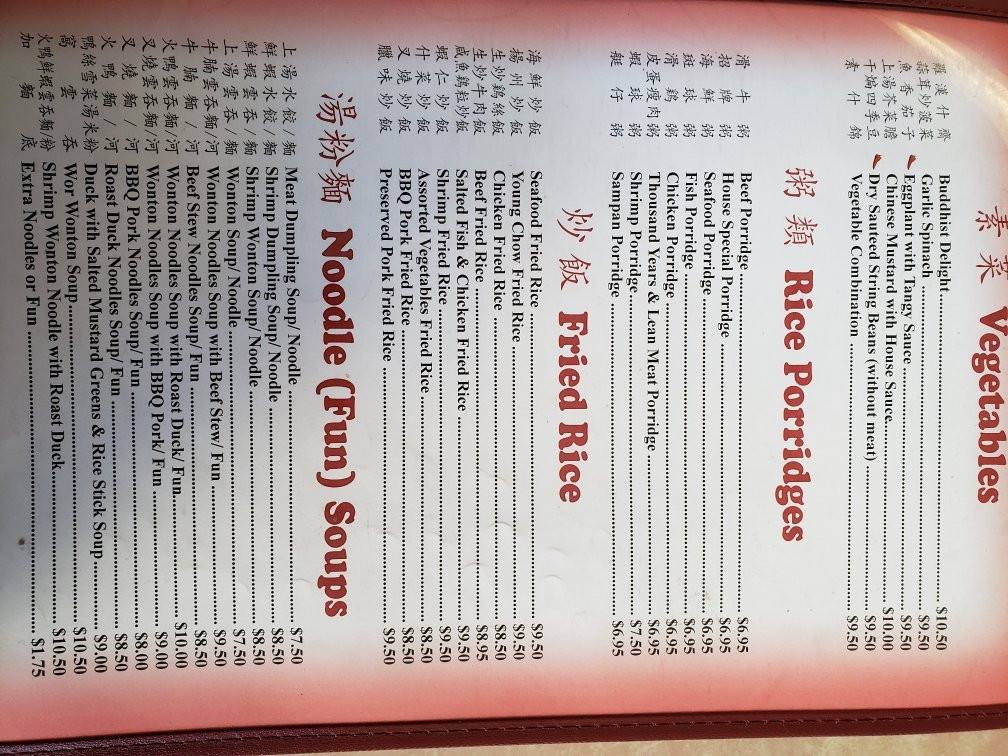 素菜 Vegetables
羅漢什齋 Buddhist Delight $10.50
蒜茸炒菠菜 Garlic Spinach $9.50
魚香茄子 Eggplant with Tangy Sauce $9.50
上湯芥菜膽 Chinese Mustard with House Sauce $10.00
干煸四季豆 Dry Sauteed String Beans (without meat) $9.50
素什錦 Vegetable Combination $9.50
粥類 Rice Porridges
滑牛粥 Beef Porridge $6.95
招牌粥 House Special Porridge $6.95
海鮮粥 Seafood Porridge $6.95
斑球粥 Fish Porridge $6.95
滑鷄粥 Chicken Porridge $6.95
皮蛋瘦肉粥 Thousand Years & Lean Meat Porridge $6.95
蝦球粥 Shrimp Porridge $7.50
艇仔粥 Sampan Porridge $6.95
炒飯 Fried Rice
海鮮炒飯 Seafood Fried Rice $9.50
揚州炒飯 Young Chow Fried Rice $9.50
生炒鷄絲飯 Chicken Fried Rice $9.50
生炒牛肉飯 Beef Fried Rice $8.95
咸魚鷄粒炒飯 Salted Fish & Chicken Fried Rice $9.50
蝦仁炒飯 Shrimp Fried Rice $9.50
什菜炒飯 Assorted Vegetables Fried Rice $8.50
叉燒炒飯 BBQ Pork Fried Rice $8.50
臘味炒飯 Preserved Pork Fried Rice $9.50
湯粉麵 Noodle (Fun) Soups
上湯水餃/麵 Meat Dumpling Soup/ Noodle $7.50
鮮蝦水餃/麵 Shrimp Dumpling Soup/ Noodle $8.50
鮮蝦雲吞/麵 Shrimp Wonton Soup/ Noodle $8.50
上湯雲吞/麵 Wonton Soup/ Noodle $7.50
牛腩雲吞麵/河 Wonton Noodles Soup with Beef Stew/ Fun $9.50
牛腩麵/河 Beef Stew Noodles Soup/ Fun $8.50
火鴨雲吞麵/河 Wonton Noodles Soup with Roast Duck/ Fun $10.00
叉燒雲吞麵/河 Wonton Noodles Soup with BBQ Pork/ Fun $9.00
叉燒麵/河 BBQ Pork Noodles Soup/ Fun $8.00
火鴨麵/河 Roast Duck Noodles Soup/ Fun $8.50
鴨絲雪菜湯米粉 Duck with Salted Mustard Greens & Rice Stick Soup $9.00
窩雲吞 Wor Wonton Soup $10.50
火鴨鮮蝦雲吞麵/粉 Shrimp Wonton Noodle with Roast Duck $10.50
加麵底 Extra Noodles or Fun $1.75